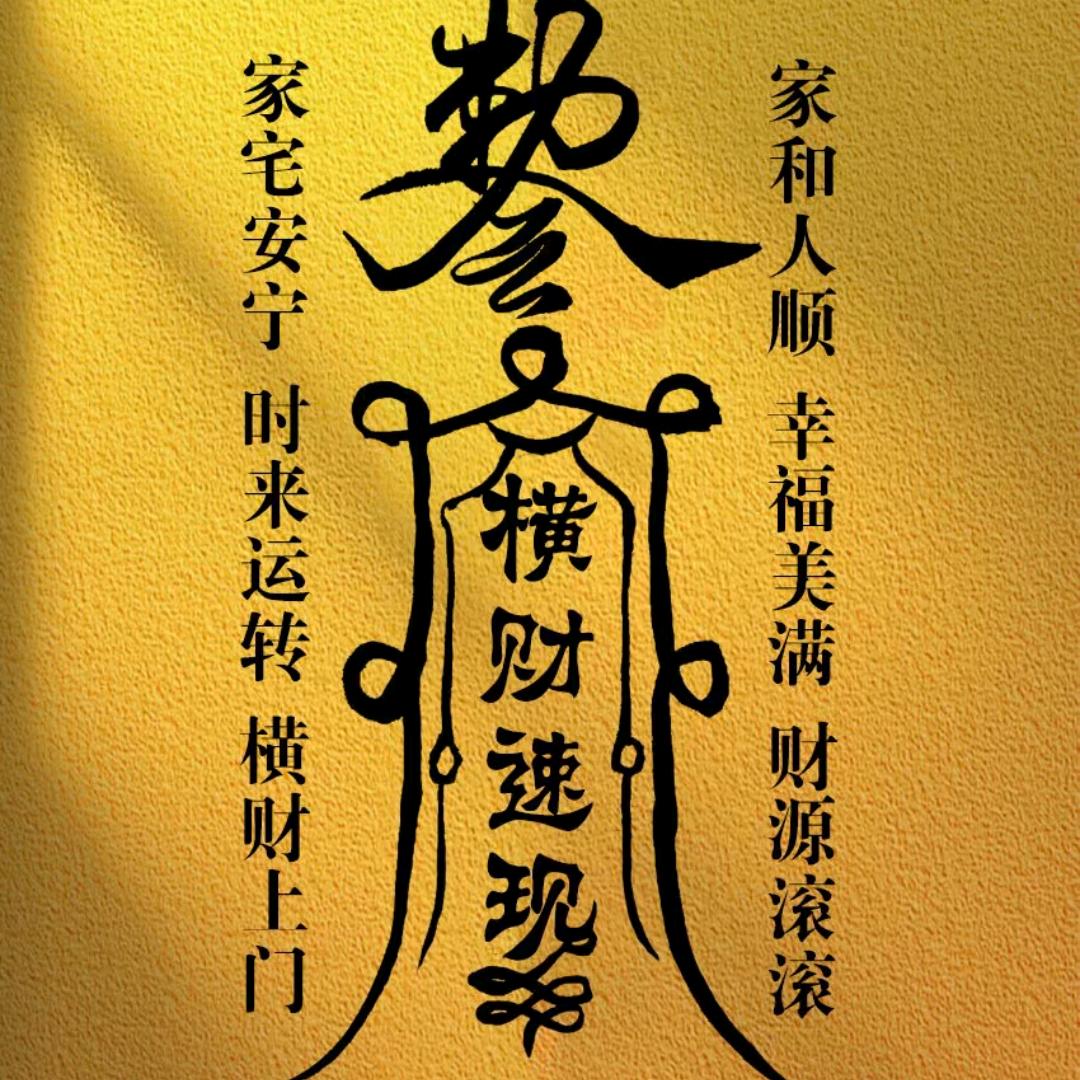 家和人顺 幸福美满 财源滚滚
横财速现
家宅安宁 时来运转 横财上门